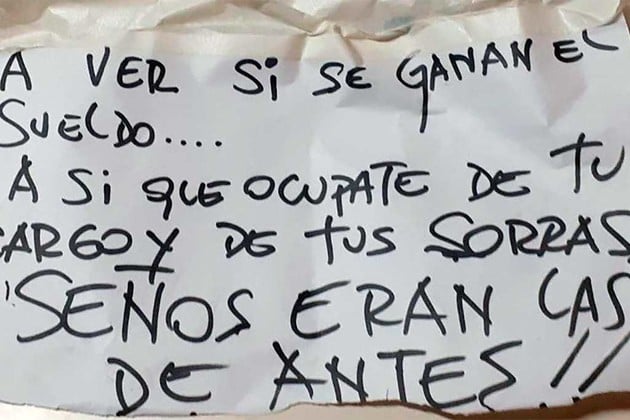 A VER SI SE GANAN EL
SUELDO....
A SI QUE OCUPATE DE TU
CARGO Y DE TUS SORRAS
'SEÑOS ERAN LAS
DE ANTES!!